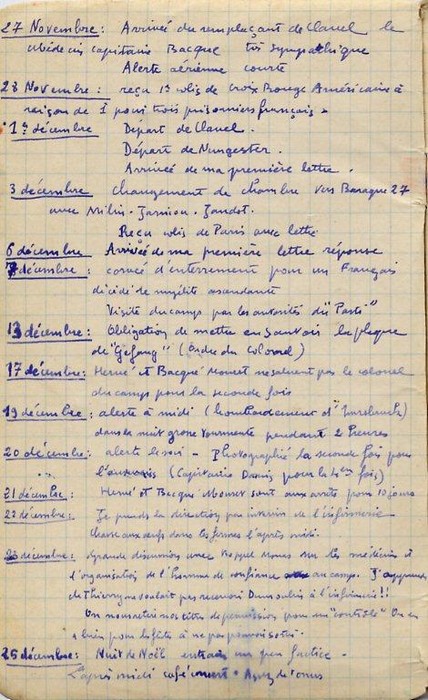 27 Novembre : Arrivée du remplaçant de Clavel le
médecin capitaine Bacque très sympathique
Alerte aérienne courte
28 Novembre : reçu 1er colis de Croix Rouge Américaine à
raison de 1 pour trois prisonniers français.
1er décembre Départ de Clavel.
Départ de Nungester.
Arrivée de ma première lettre.
3 décembre changement de chambre vers Baraque 27
avec
Reçu colis de Paris avec lettre
6 décembre Arrivée de ma première lettre réponse
7 décembre : corvée d'enterrement pour un Français
décédé de myélite ascendante
Visite du camp par les autorités du "Parti"
13 décembre : Obligation de mettre en sautoir la plaque
de "Gefang" (Ordre du Colonel)
17 décembre : Hervé et Bacqué Mouret ne saluent pas le colonel
du camp pour la seconde fois
19 décembre : alerte à midi (bombardement d'
dans la nuit grosse tourmente pendant 2 heures
20 décembre : alerte le soir - Photographié la seconde fois pour
(Capitaine pour la 4ème fois)
21 décembre : Hervé et Bacqué Mouret sont aux arrêts pour 10 jours
22 décembre : Je prends la direction par interim de l'infirmerie
dans les fermes l'après midi.
décembre : Grande discussion avec sur les médecins et
l'organisation de l'homme de confiance au camp. J'apprends
de Thierry ne voulait pas recevoir à l'infirmerie !!
On nous retire nos titres de permission pour un "contrôle" On en
a bien pour les fêtes à ne pas pouvoir sortir.
25 décembre : Nuit de Noël entrain un peu factice -
L'après midi café concert.